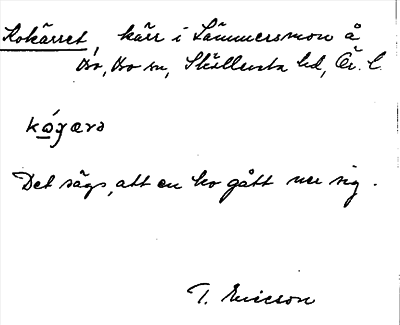 Kokärret, kärr i Lämmersmon å
Bo, Bo sn, Skyllersta hd, Ör. l.
kǿʒærə
Det sägs, att en ko gått ner sig.
T. Ericson